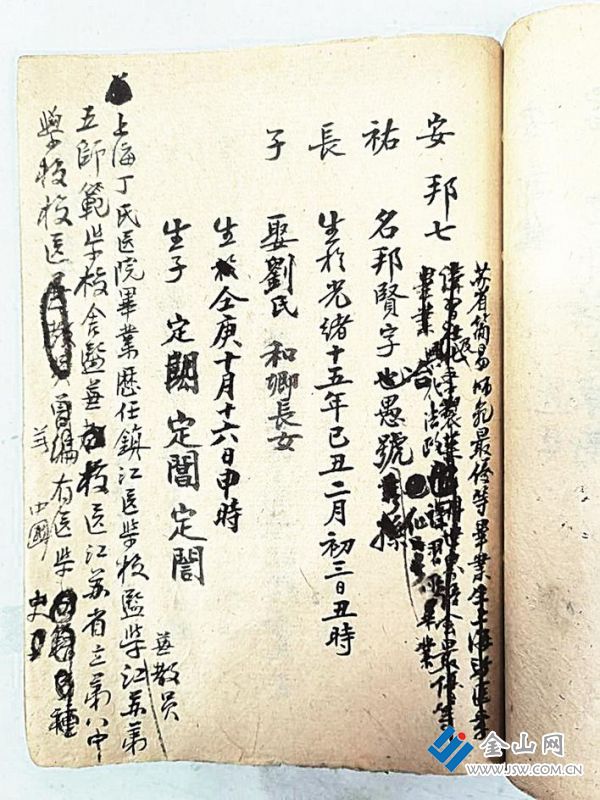 苏省簡易师范最優等畢業生上海
世界語會最優等
畢業 法政 畢業
安祐長子
邦七
名邦賢字也愚號
生於光緒十五年己丑二月初三日丑時
娶劉氏 和卿長女
生於仝庚十月十六日申時
生子 定 定誾 定
上海丁氏医院畢業歷任鎮江医学校監学江苏第
兼教员
五師範学校舍監兼校医江苏省立第八中
學校校医 曾編有医学 種
並 中國 史
金山网
WWW.JSW.COM.CN